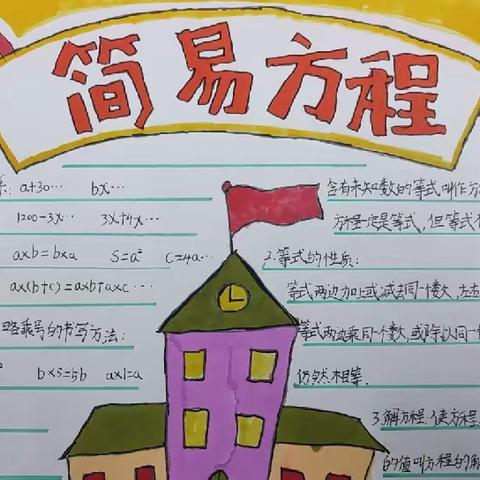 简易方程
a+30… bx…
1200-3x… 3x+4x…
axb=bxa S=a² C=4a…
ax(b+c)=axb+axc…
略乘号的书写方法:
² bx5=5b ax1=a
含有未知数的等式叫作方
方程一定是等式,但等式不
2.等式的性质:
等式两边加上或减去同一个数,左右
等式两边乘同一个数,或除以同一
仍然相等.
3.解方程:使方程
的值叫方程的解